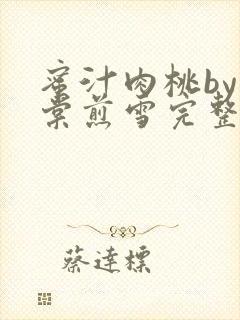 蜜汁肉桃by
棠煎雪完整
蔡達標